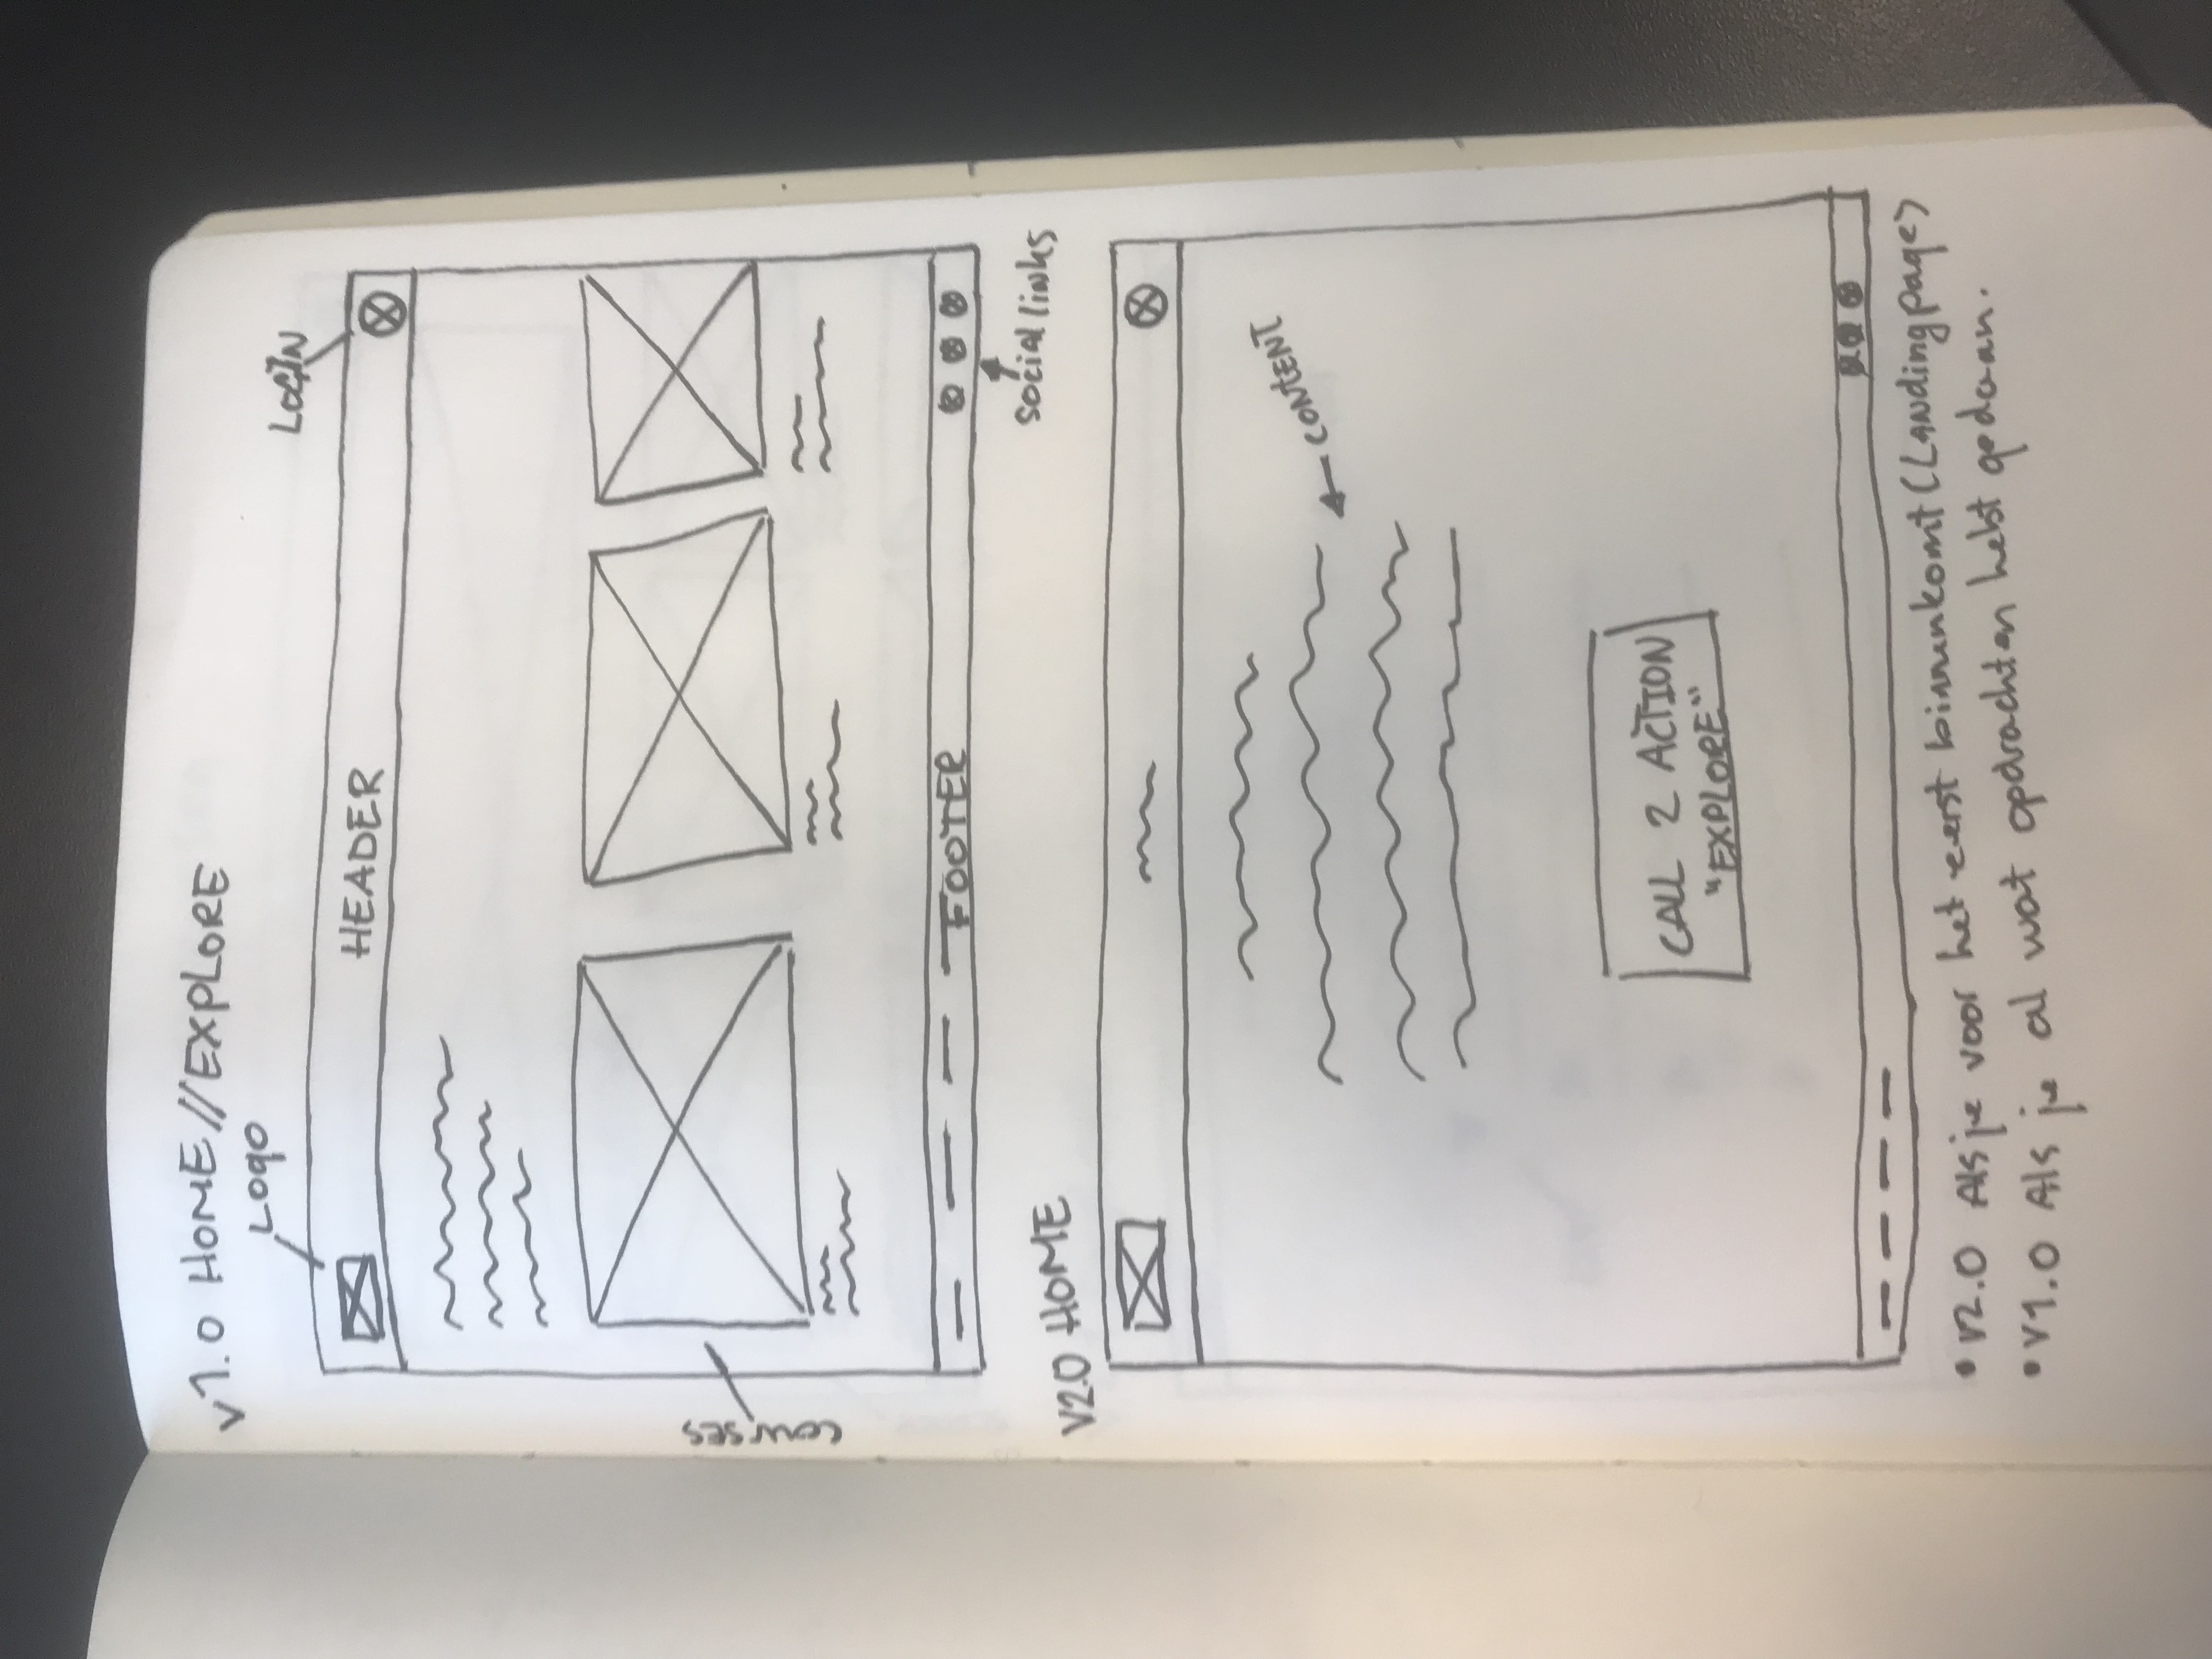 v1.0 HOME//EXPLORE
Logo
LOGIN
HEADER
COURSES
FOOTER
social links
V2.0 HOME
CONTENT
CALL 2 ACTION
"EXPLORE"
• V2.0 Als je voor het eerst binnenkomt (Landingpage)
• V1.0 Als je al wat opdrachten hebt gedaan.